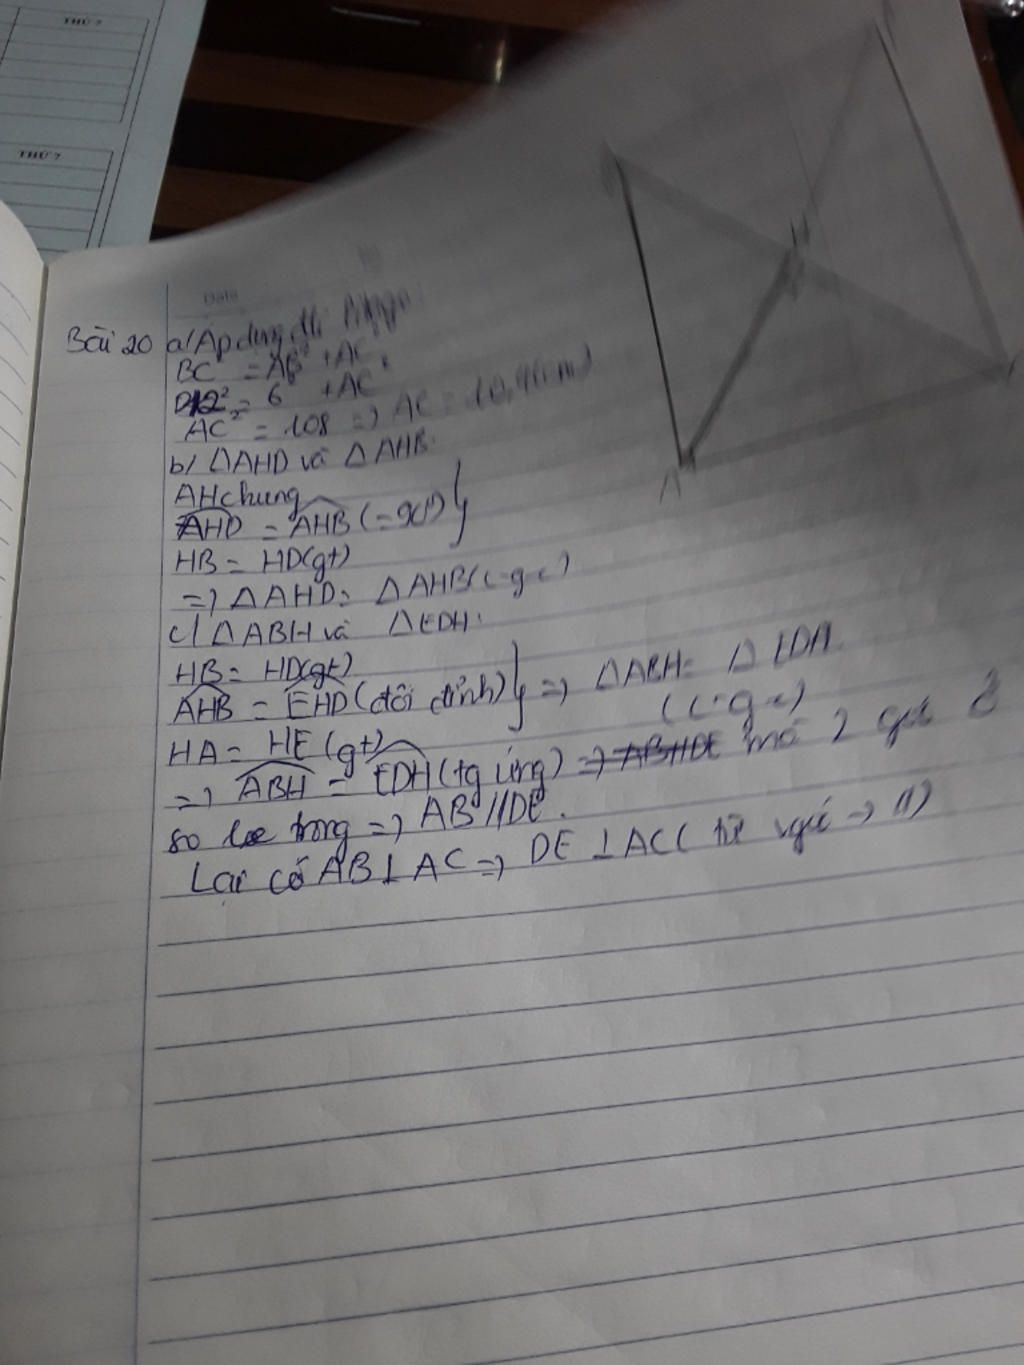 THỨ 7
THỨ 7
Date
Bài 20 a/ Áp dụng đlí
BC² = AB² + AC²
12² = 6² + AC²
AC² = 108 => AC = 10,4(cm)
b/ △AHD và △AHB
AH chung
AHD = AHB (=90°) }
HB = HD(gt)
=> △AHD = △AHB(c-g-c)
c/ △ABH và △EDH.
HB = HD(gt)
AHB = EHD (đối đỉnh) } => △ABH = △EDH
(c-g-c)
HA = HE (gt)
=> ABH = EDH (tg ứng) => mà 2 góc ở
so le trong => AB // DE.
Lại có AB ⊥ AC => DE ⊥ AC ( từ vgóc -> //)
H
A